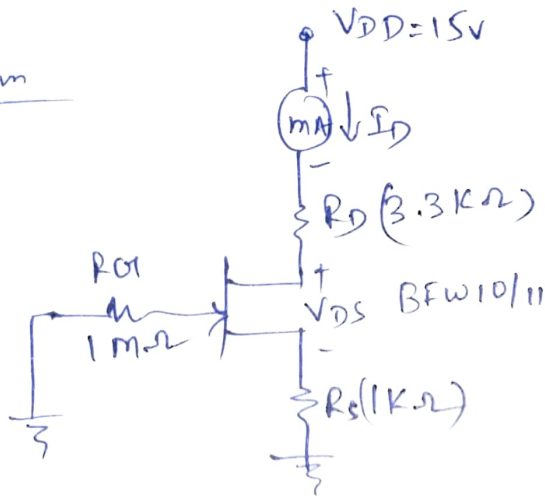 VDD=15V
m
+
mA ↓ ID
-
RD (3.3KΩ)
RG1
1MΩ
+
VDS BFW10/11
-
RS(1KΩ)